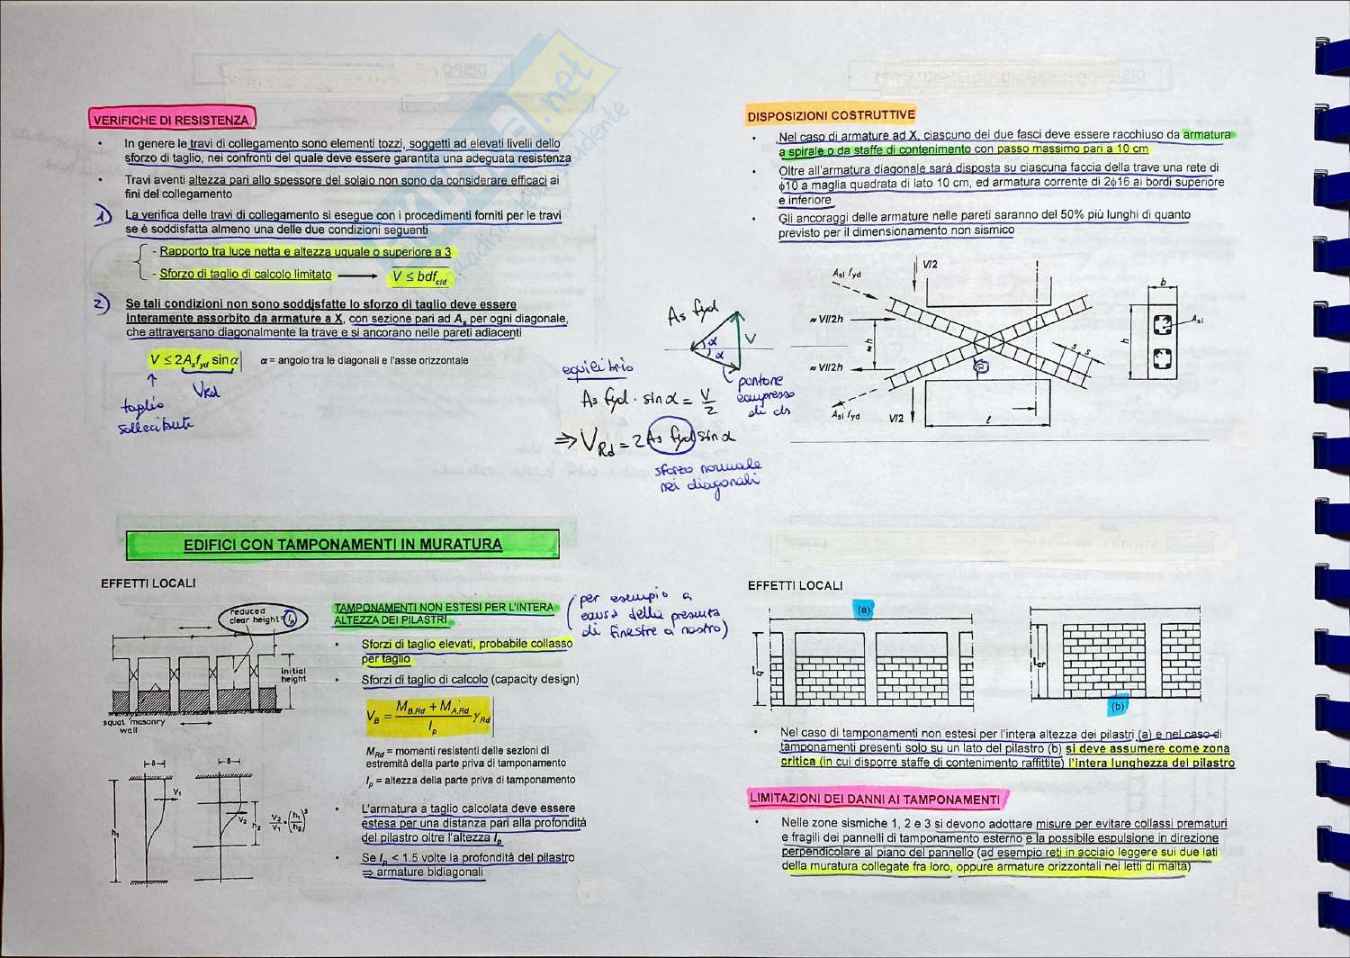 VERIFICHE DI RESISTENZA
• In genere le travi di collegamento sono elementi tozzi, soggetti ad elevati livelli dello
sforzo di taglio, nei confronti del quale deve essere garantita una adeguata resistenza
• Travi aventi altezza pari allo spessore del solaio non sono da considerare efficaci ai
fini del collegamento
1) La verifica delle travi di collegamento si esegue con i procedimenti forniti per le travi
se è soddisfatta almeno una delle due condizioni seguenti
- Rapporto tra luce netta e altezza uguale o superiore a 3
- Sforzo di taglio di calcolo limitato → V ≤ bdfctd
2) Se tali condizioni non sono soddisfatte lo sforzo di taglio deve essere
interamente assorbito da armature a X, con sezione pari ad As per ogni diagonale,
che attraversano diagonalmente la trave e si ancorano nelle pareti adiacenti
V ≤ 2Asfyd sinα α = angolo tra le diagonali e l'asse orizzontale
↑ VRd
taglio
sollecitante
As fyd
α
α
V
equilibrio
As fyd · sinα = V/2
puntone
compresso
di cls
⇒ VRd = 2 As fyd sinα
sforzo normale
nei diagonali
DISPOSIZIONI COSTRUTTIVE
• Nel caso di armature ad X, ciascuno dei due fasci deve essere racchiuso da armatura
a spirale o da staffe di contenimento con passo massimo pari a 10 cm
• Oltre all'armatura diagonale sarà disposta su ciascuna faccia della trave una rete di
ϕ10 a maglia quadrata di lato 10 cm, ed armatura corrente di 2ϕ16 ai bordi superiore
e inferiore
• Gli ancoraggi delle armature nelle pareti saranno del 50% più lunghi di quanto
previsto per il dimensionamento non sismico
Asi fyd
V/2
≈ Vl/2h
≈h
≈ Vl/2h
Asi fyd
V/2
l
s
s
b
h
Asi
EDIFICI CON TAMPONAMENTI IN MURATURA
EFFETTI LOCALI
reduced
clear height = lp
initial
height
squat masonry
wall
TAMPONAMENTI NON ESTESI PER L'INTERA
ALTEZZA DEI PILASTRI
(per esempio a
causa della presenza
di finestre a nastro)
• Sforzi di taglio elevati, probabile collasso
per taglio
• Sforzi di taglio di calcolo (capacity design)
VB = (MB,Rd + MA,Rd) / lp γRd
MRd = momenti resistenti delle sezioni di
estremità della parte priva di tamponamento
lp = altezza della parte priva di tamponamento
• L'armatura a taglio calcolata deve essere
estesa per una distanza pari alla profondità
del pilastro oltre l'altezza lp
• Se lp < 1.5 volte la profondità del pilastro
⇒ armature bidiagonali
V1
h1
V2
h2
V2/V1 = (h1/h2)³
EFFETTI LOCALI
(a)
lcr
lcr
(b)
• Nel caso di tamponamenti non estesi per l'intera altezza dei pilastri (a) e nel caso di
tamponamenti presenti solo su un lato del pilastro (b) si deve assumere come zona
critica (in cui disporre staffe di contenimento raffittite) l'intera lunghezza del pilastro
LIMITAZIONI DEI DANNI AI TAMPONAMENTI
• Nelle zone sismiche 1, 2 e 3 si devono adottare misure per evitare collassi prematuri
e fragili dei pannelli di tamponamento esterno e la possibile espulsione in direzione
perpendicolare al piano del pannello (ad esempio reti in acciaio leggere sui due lati
della muratura collegate fra loro, oppure armature orizzontali nei letti di malta)